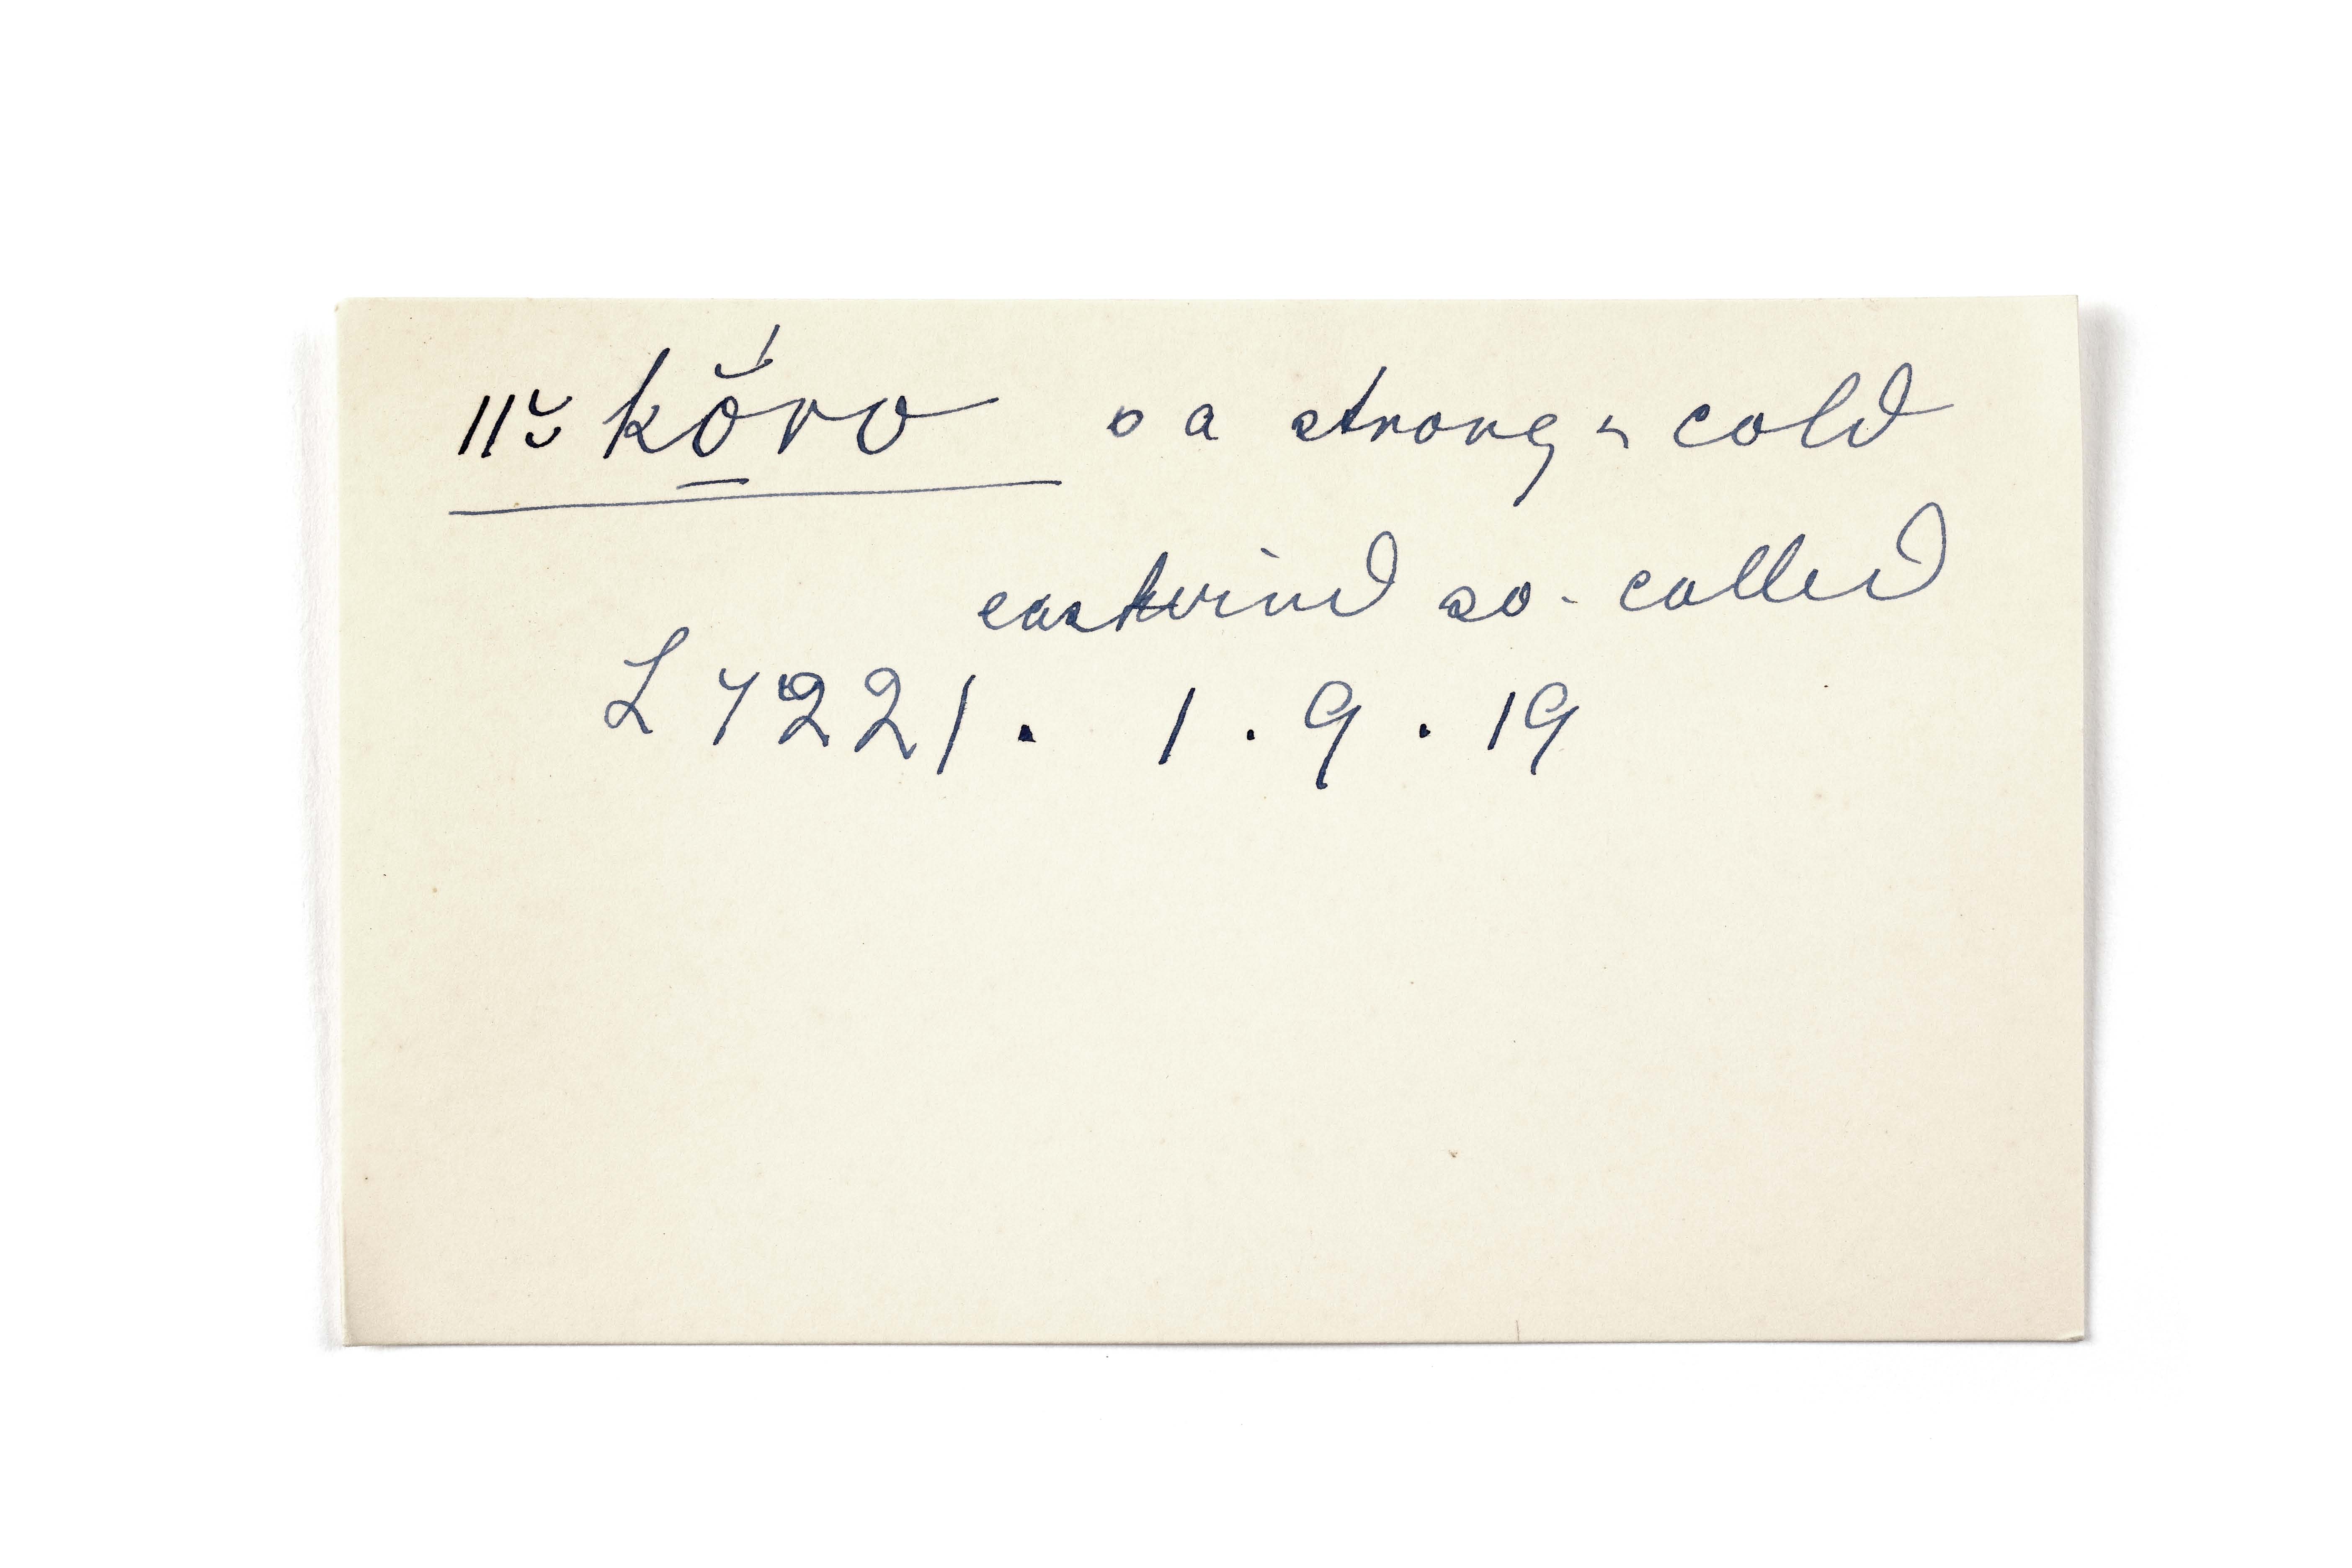 ǁ̆kŏ̠́ro s a strong & cold
eastwind so-called
L 7221. 1.9.19